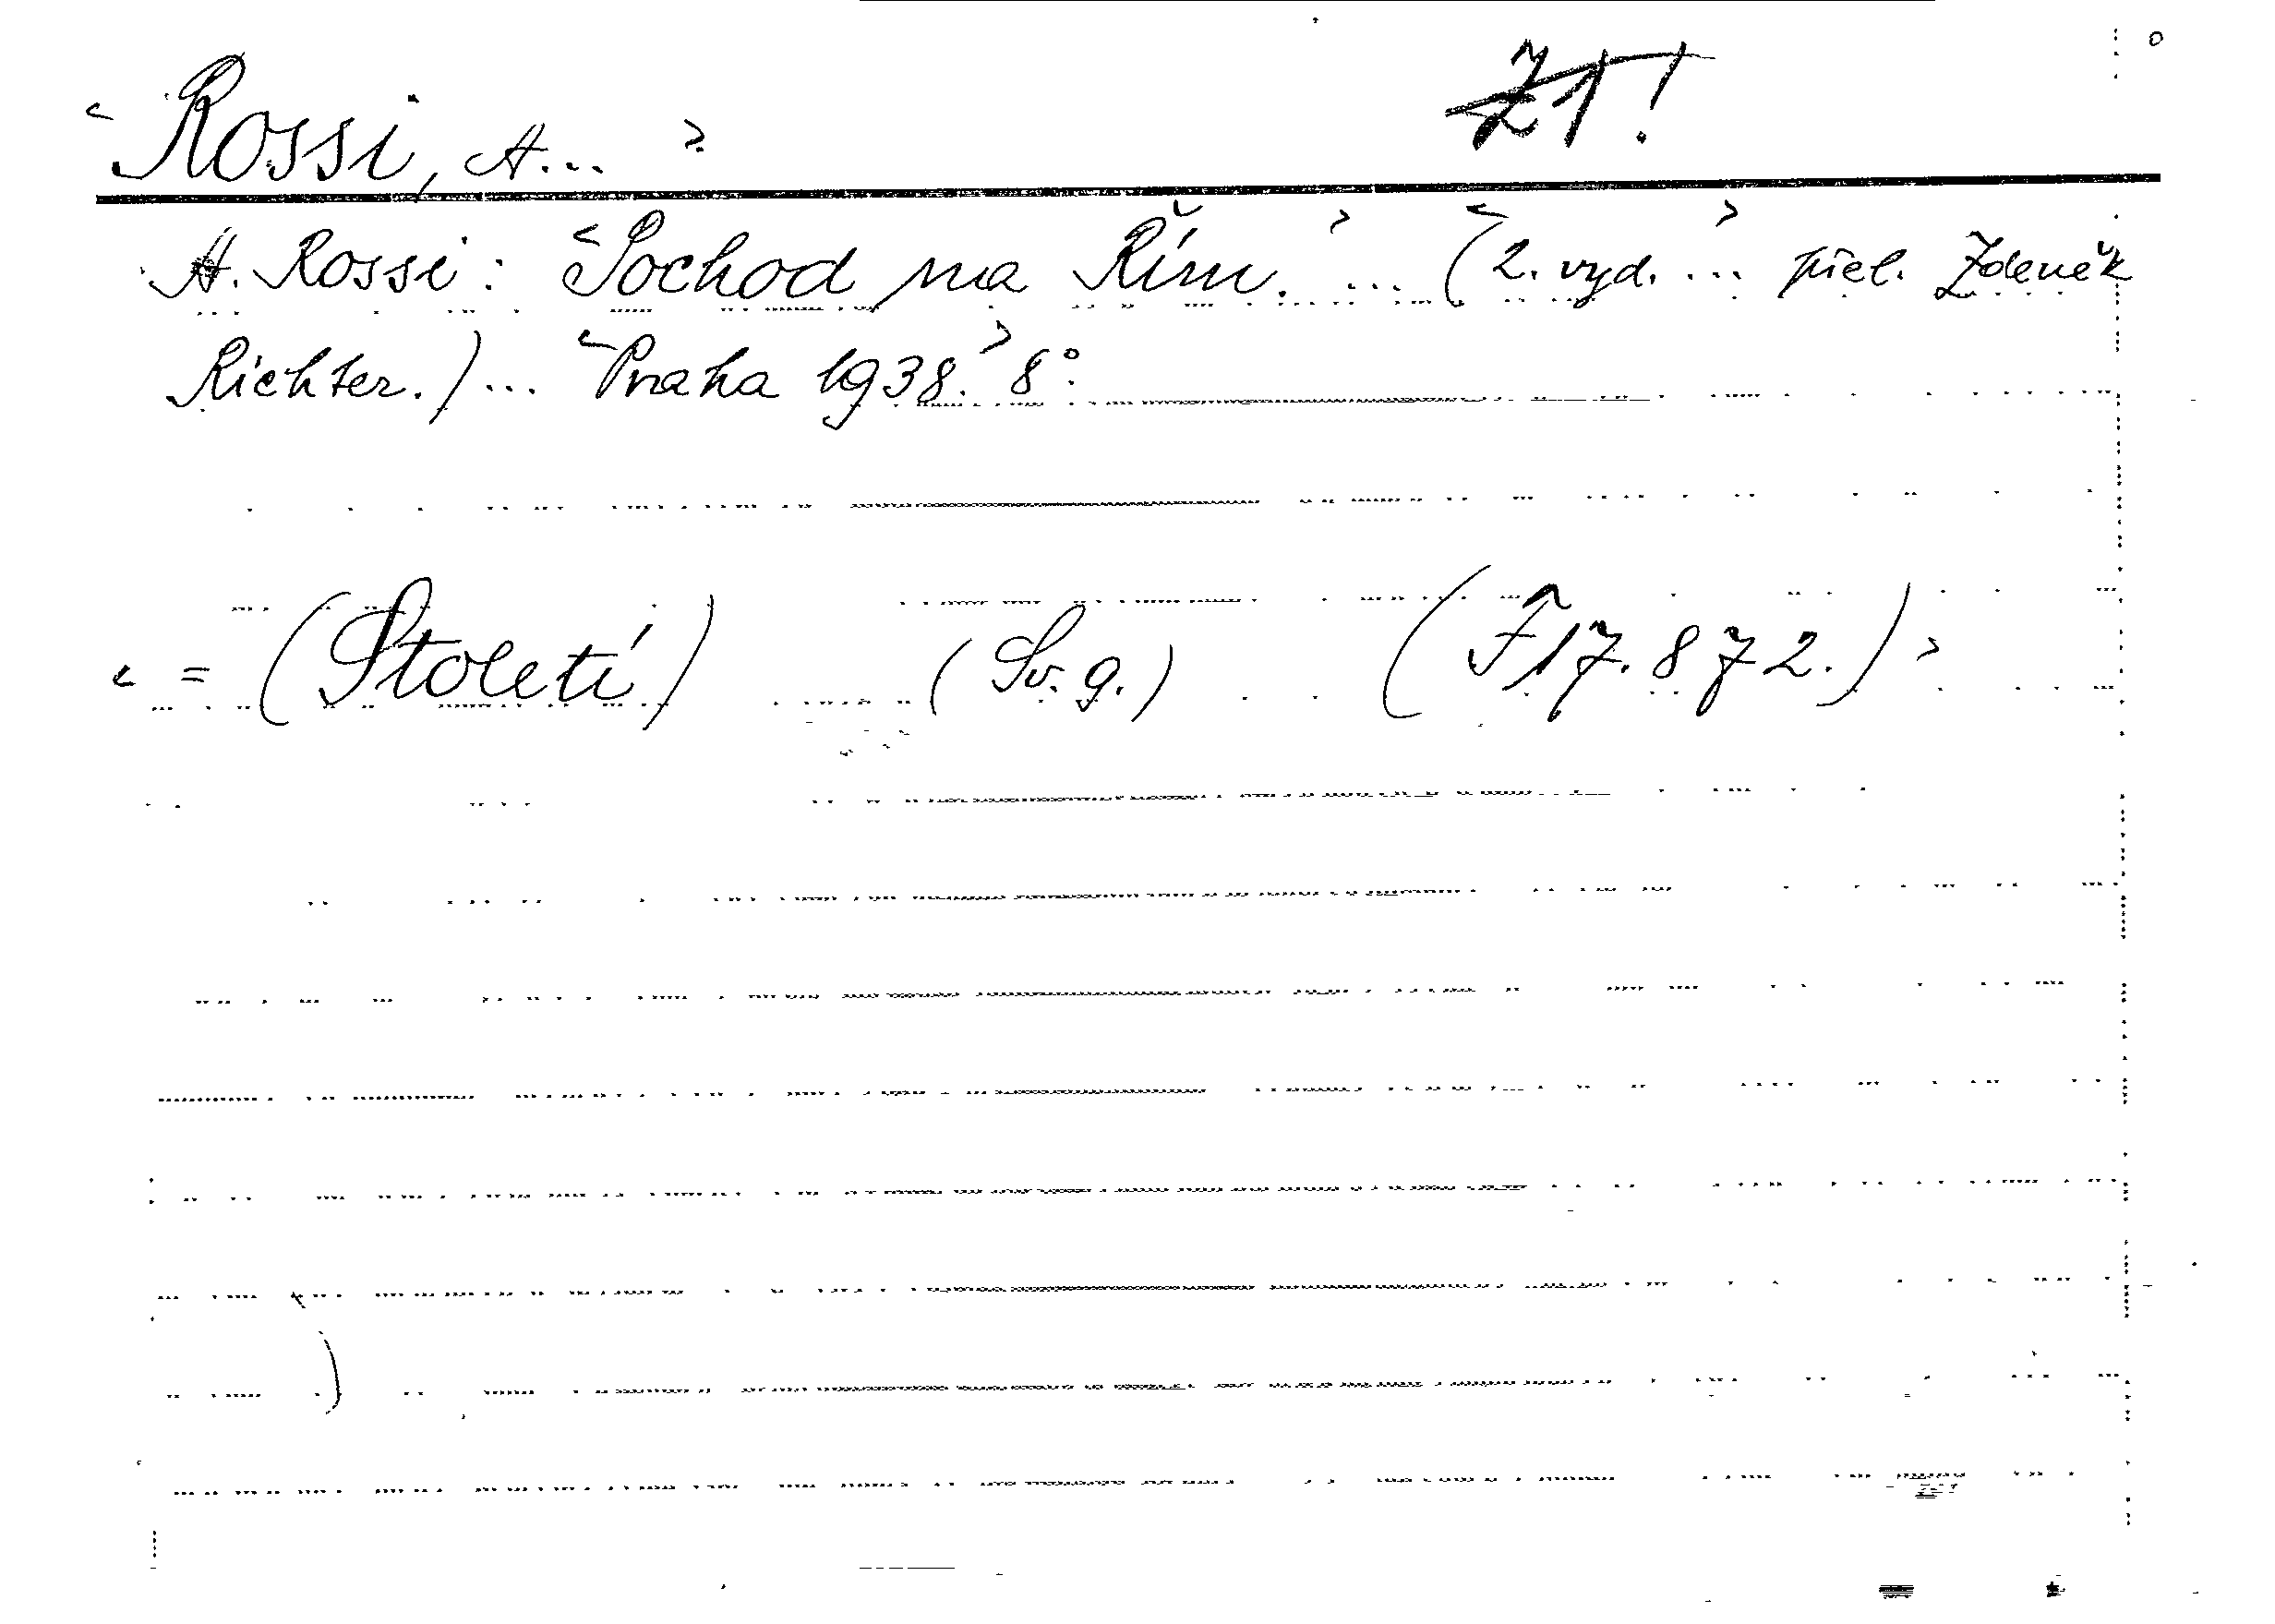 <Rossi, A...> Z1!
A. Rossi: <Pochod na Řím.> ... <(2. vyd. ...> přel. Zdeněk
Richter.) ... <Praha 1938.> 8°.
< = (Století) (Sv. 9.) (F 17.872.) >